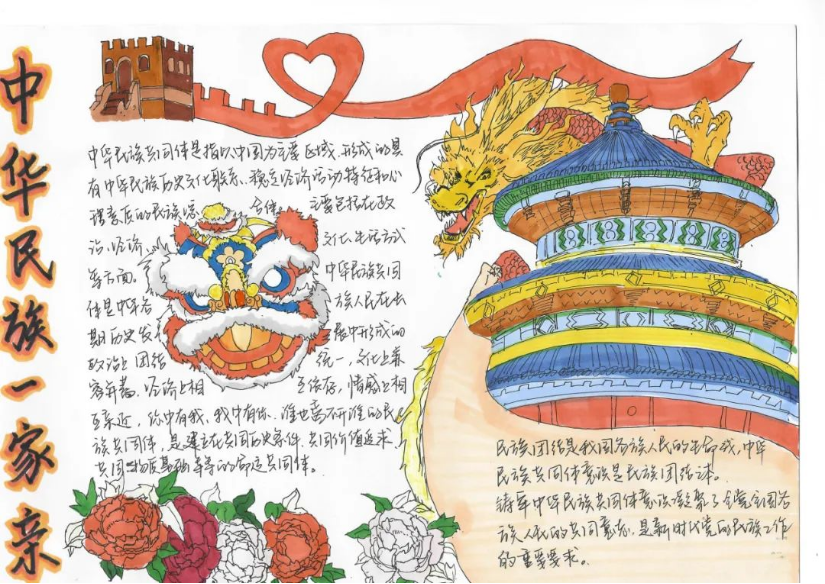 中华民族一家亲
中华民族共同体是指以中国为主要区域、形成的具
有中华民族历史文化联系、稳定经济活动特征和心
理素质的民族综合体。主要包括在政
治、经济、文化、生活方式
等方面。中华民族共同
体是中华各族人民在长
期历史发展中形成的
政治上团结统一，文化上兼
容并蓄、经济上相互依存，情感上相
互亲近，你中有我、我中有你、谁也离不开谁的民
族共同体，是建立在共同历史条件、共同价值追求、
共同物质基础等的命运共同体。
民族团结是我国各族人民的生命线，中华
民族共同体意识是民族团结之本。
铸牢中华民族共同体意识凝聚了全党全国各
族人民的共同意志，是新时代党的民族工作
的重要要求。